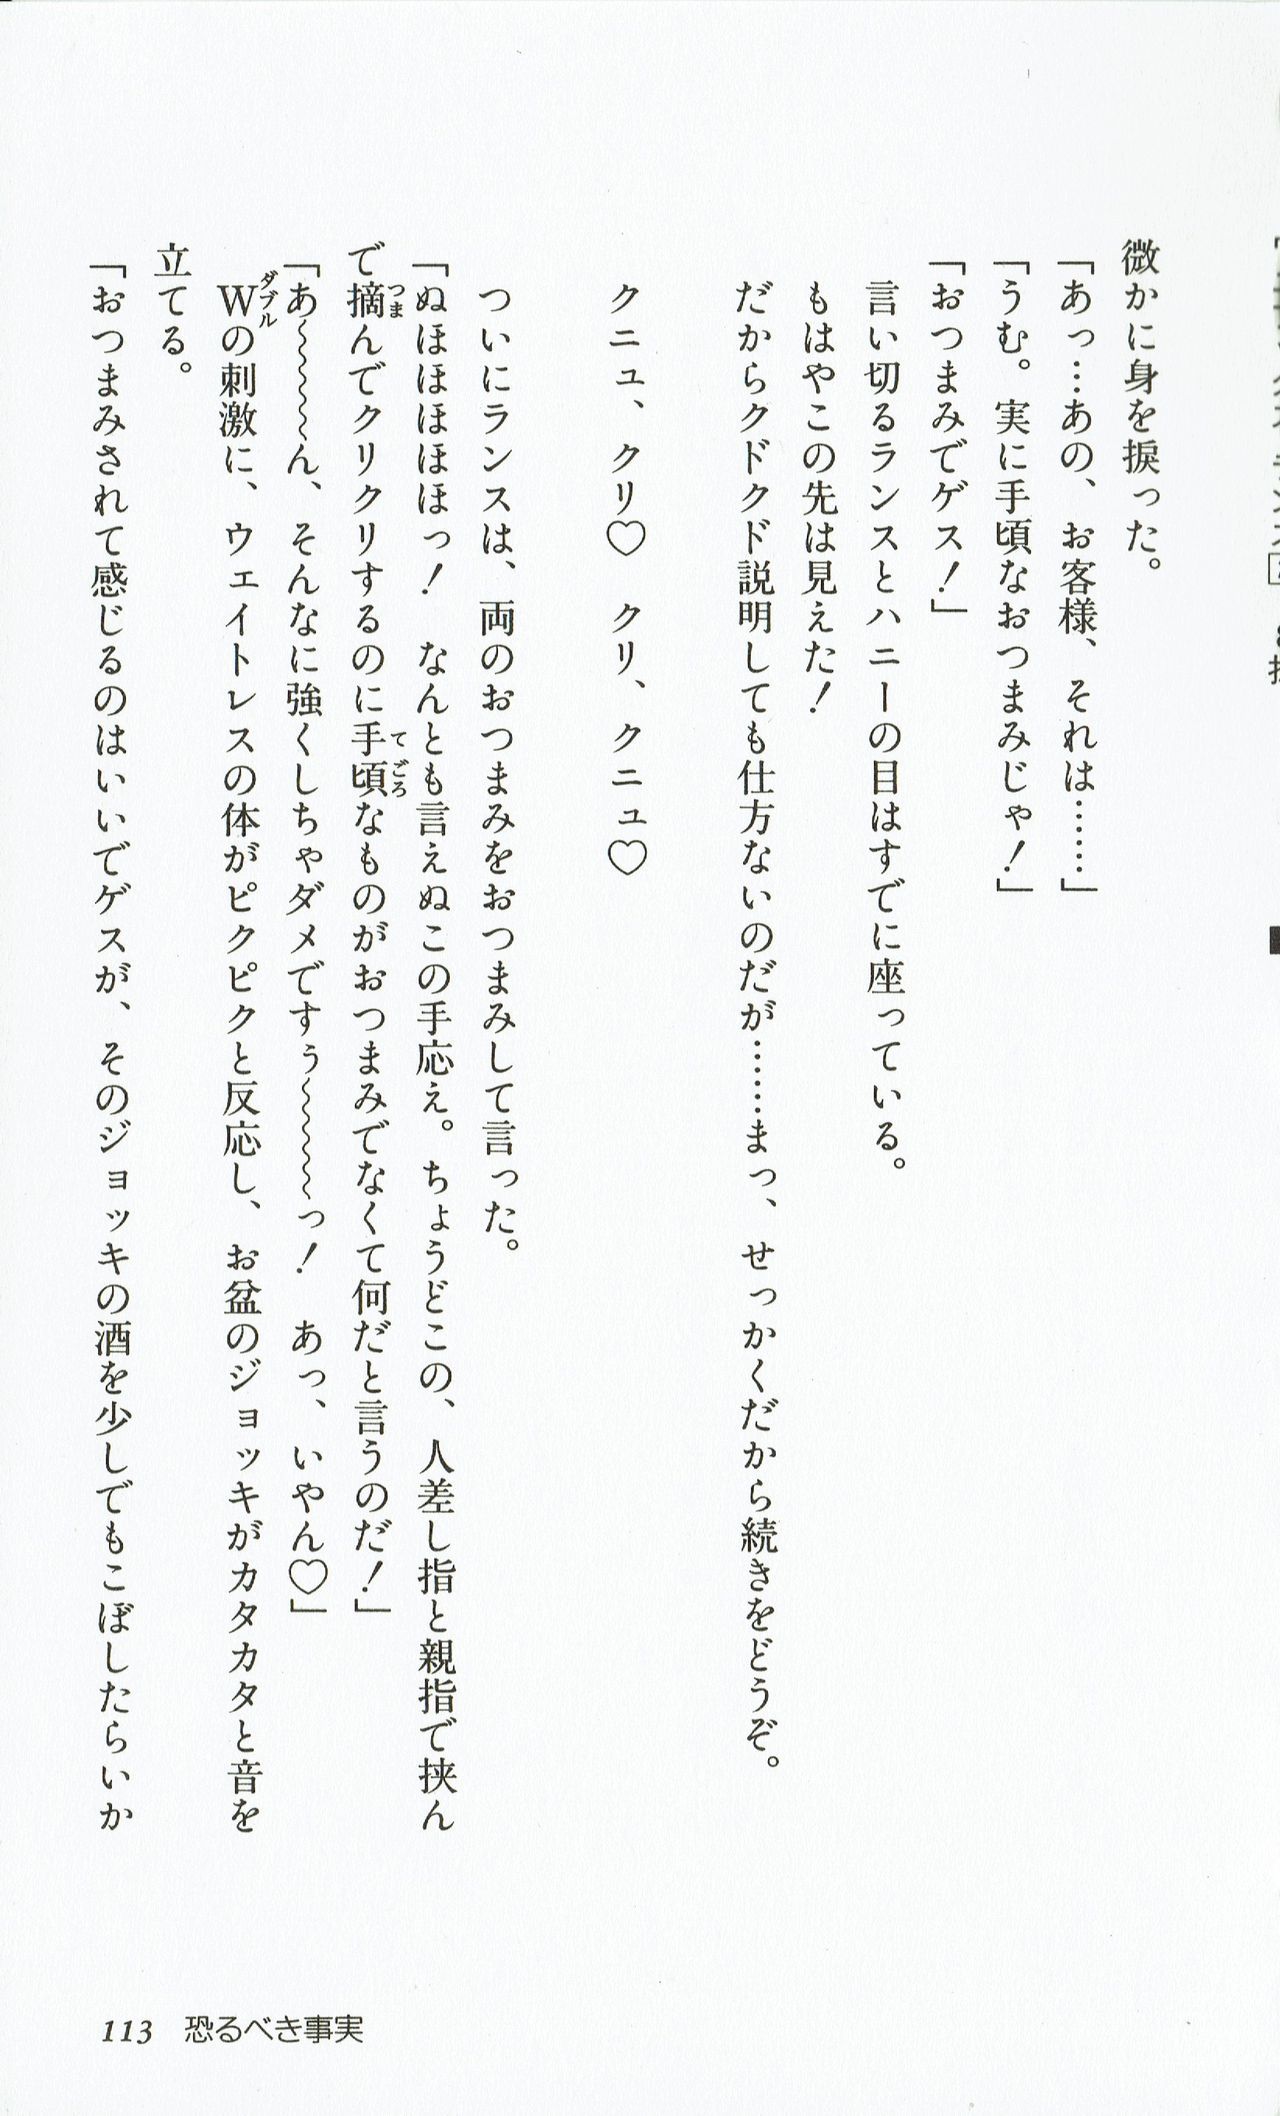 微かに身を捩った。
「あっ…あの、お客様、それは……」
「うむ。実に手頃なおつまみじゃ！」
「おつまみでゲス！」
言い切るランスとハニーの目はすでに座っている。
もはやこの先は見えた！
だからクドクド説明しても仕方ないのだが……まっ、せっかくだから続きをどうぞ。
クニュ、クリ♡　クリ、クニュ♡
ついにランスは、両のおつまみをおつまみして言った。
「ぬほほほほっ！　なんとも言えぬこの手応え。ちょうどこの、人差し指と親指で挟ん
で摘んでクリクリするのに手頃なものがおつまみでなくて何だと言うのだ！」
「あ〜〜〜〜ん、そんなに強くしちゃダメですぅ〜〜〜〜っ！　あっ、いやん♡」
Wの刺激に、ウェイトレスの体がピクピクと反応し、お盆のジョッキがカタカタと音を
立てる。
「おつまみされて感じるのはいいでゲスが、そのジョッキの酒を少しでもこぼしたらいか
113 恐るべき事実